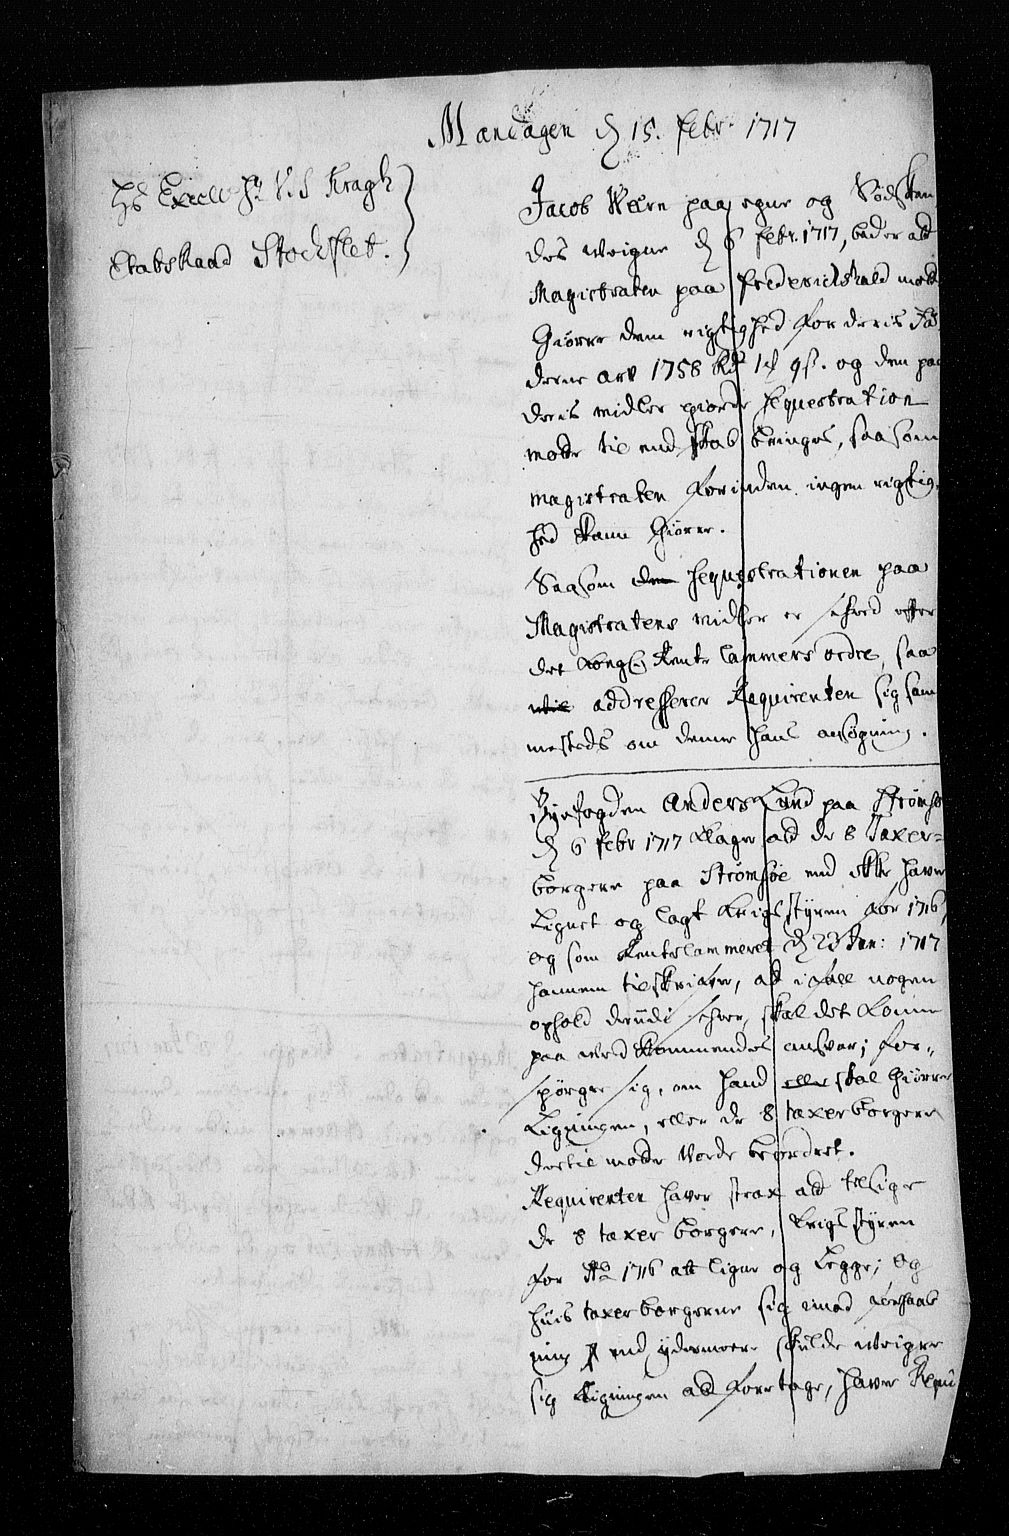 Mandagen d 15. Febr. 1717
Hs Excell. Hr V. S Kragh
Etatsraad Stockflet.
Jacob Wern paa egne og Sødsken
des weigne d 6 febr. 1717, beder att
Magistraten paa Fredericshald motte
Giørre dem rigtighed for deris Fæ
derne arv 1758 Rdr 1 9 s. og den paa
deris midler giorde sequestration
motte til endskab bringes, saasom
magistraten forinden ingen rigtig-
hed kann Giøre.
Saasom den sequestrationen paa
Magistratens midler er skeed effter
det Kongl. Rente Cammers ordre, saa
addresserer Requirenten sig sam
mesteds om denne hans ansøgning.
Byefogden Anders Lund paa Strømsø
d 6 febr 1717 klager att de 8 Taxer-
borgere paa Strømsøe end ikke haver
Lignet og lagt Krigsstyren for 1716,
og som Rentecammeret d 23 Jan: 1717
hannem tilskrifver, at ifall nogen
ophold derudi skeer, skal det komme
paa wedkommendes ansvar; for-
spørger sig, om hand eller skal Giørre
Ligningen, eller de 8 taxerborgere
dertil motte worde beordret.
Requirenten haver strax att tilsige
de 8 taxerborgere, Krigsstyren
for Ao 1716 att ligne og Legge; og
huis taxerborgerne sig imod forhaab
ning end ydermeere skulde weigre
sig Ligningen att foretage, haver Requi